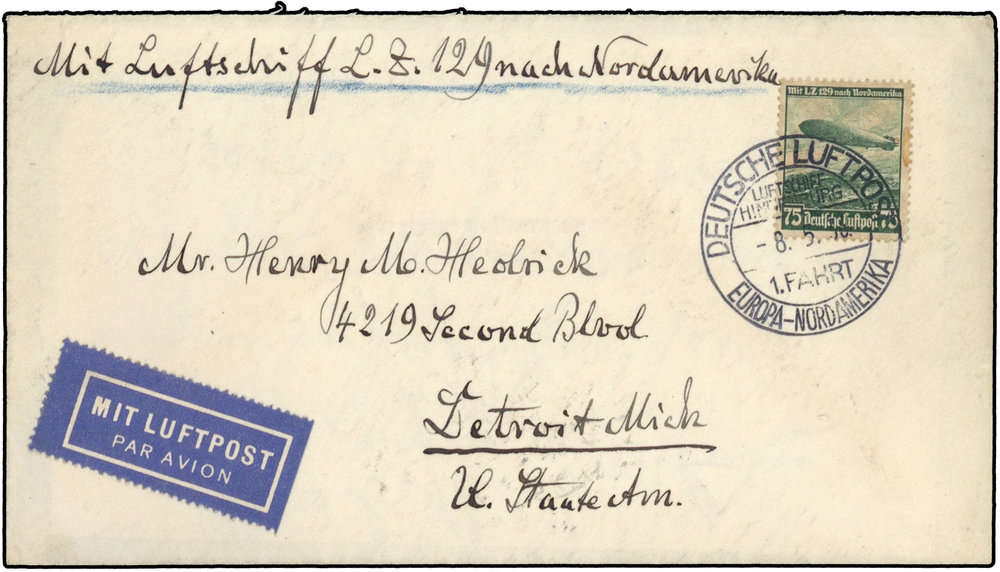 Mit Luftschiff L.Z. 129 nach Nordamerika
Mit LZ 129 nach Nordamerika
75 Deutsche Luftpost 75
DEUTSCHE LUFTPOST
LUFTSCHIFF
HINDENBURG
- 8. 5. 36.
1. FAHRT
EUROPA-NORDAMERIKA
Mr. Henry M. Hedrick
4219 Second Blvd
Detroit Mich
U. Staate Am.
MIT LUFTPOST
PAR AVION